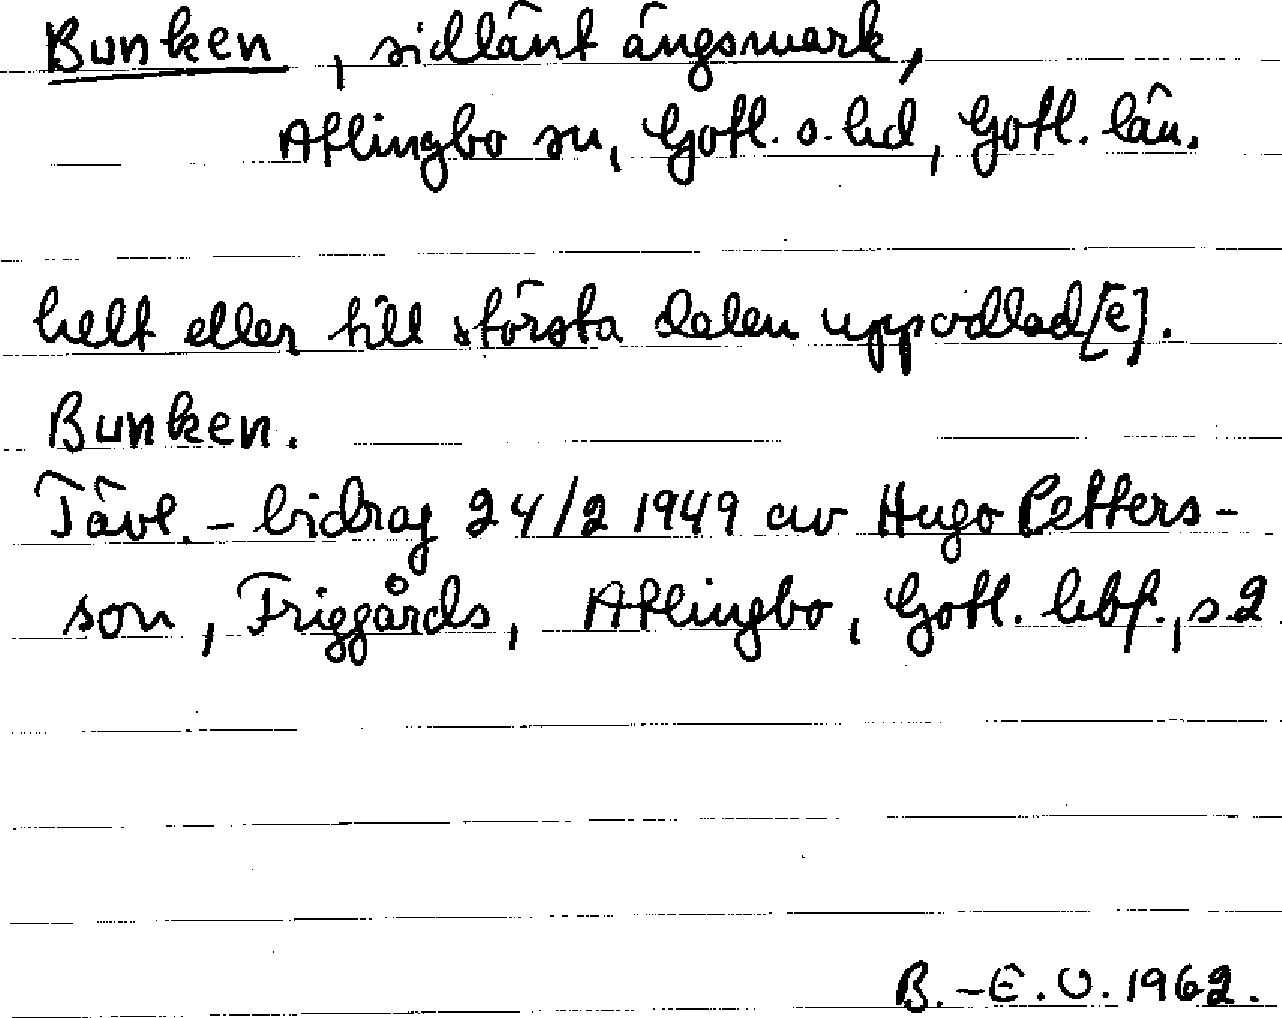 Bunken, sidlänt ängsmark,
Atlingbo sn, Gotl. s. hd, Gotl. län.
helt eller till största delen uppodlad[e].
Bunken.
Tävl.-bidrag 24/2 1949 av Hugo Petters-
son, Friggårds, Atlingbo, Gotl. hbf., s. 2
B.-E. O. 1962.